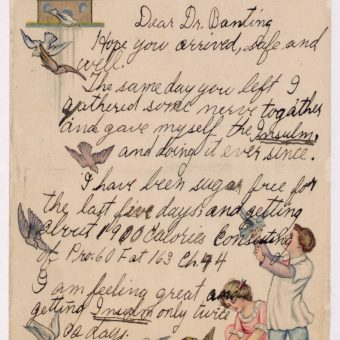 Dear Dr. Banting
Hope you arrived, safe and
well.
The same day you left I
gathered some nerve togather
and gave myself the Insulin,
and doing it ever since.
I have been sugar free for
the last five days, and getting
about 1900 Calories Consisting
of Pro. 60 Fat 163 Ch. 94
I am feeling great and
getting Insulin only twice
a days.